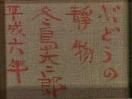 ぶどうの
静物
冬島英三郎
平成六年